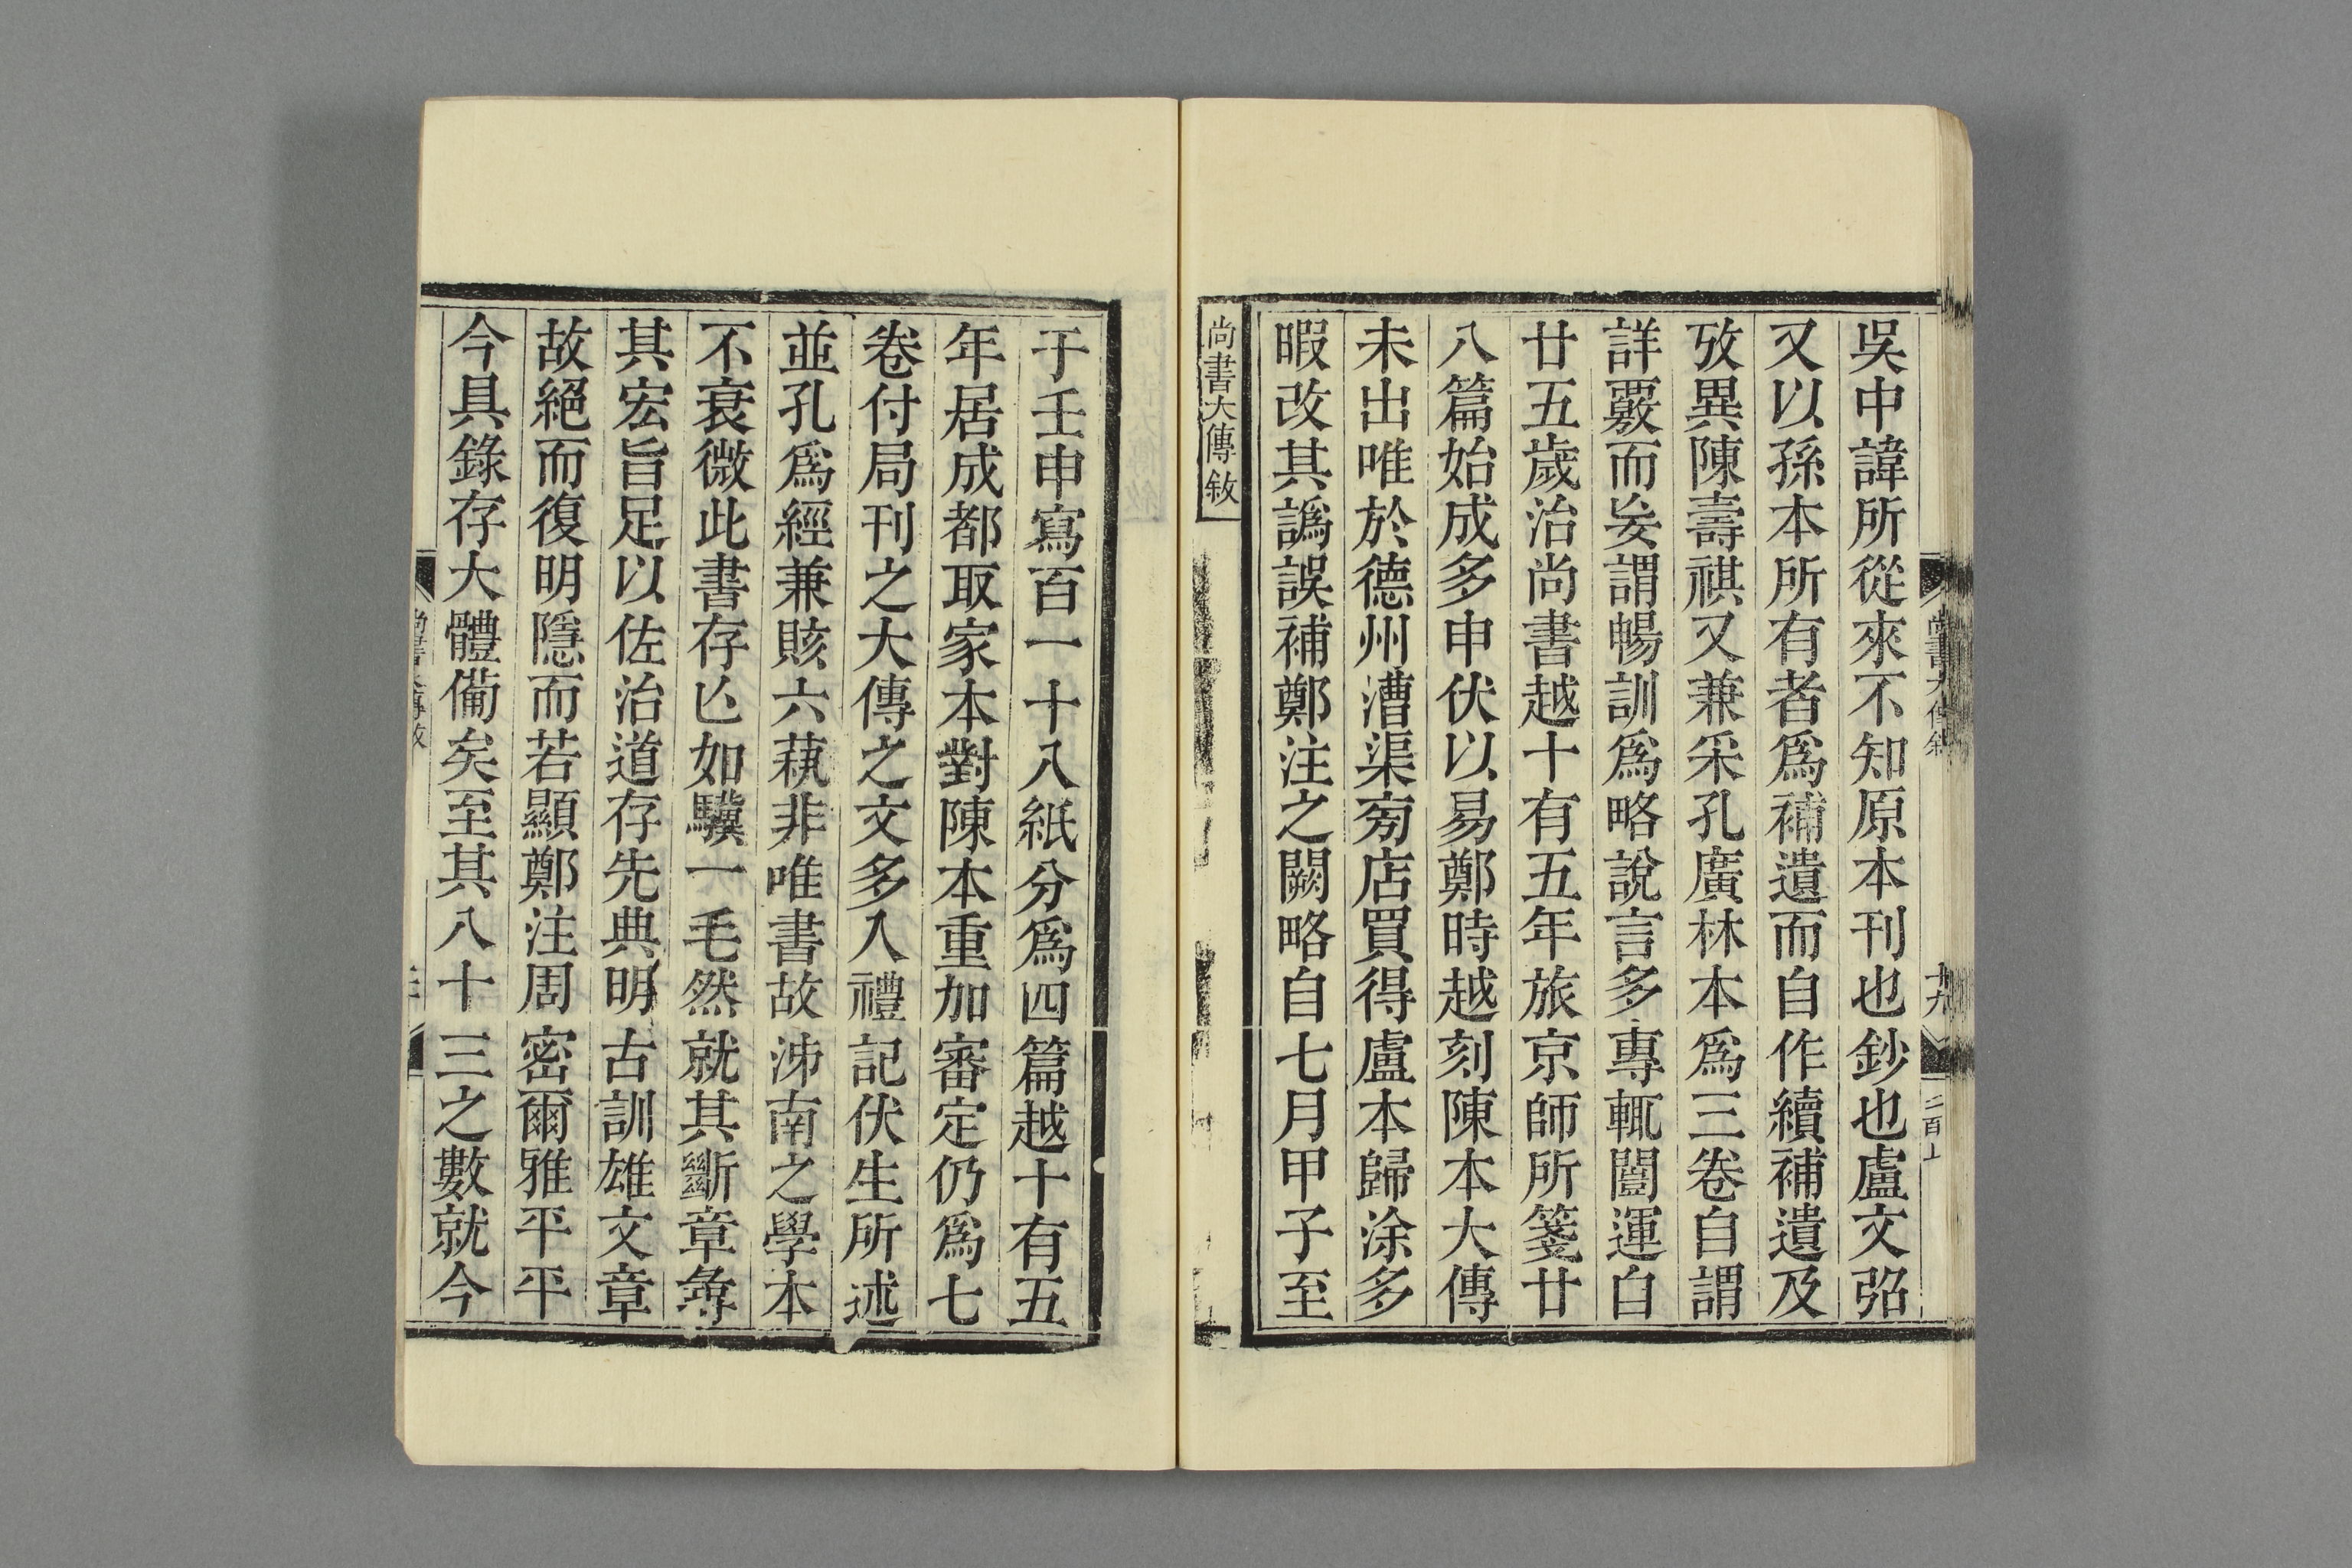 吳中諱所從來不知原本刊也鈔也盧文弨
又以孫本所有者爲補遺而自作續補遺及
攷異陳壽祺又兼采孔廣林本爲三卷自謂
詳覈而妄謂暢訓爲略說言多專輒闓運自
廿五歲治尚書越十有五年旅京師所箋廿
八篇始成多申伏以易鄭時越刻陳本大傳
未出唯於德州漕渠旁店買得盧本歸涂多
暇改其譌誤補鄭注之闕略自七月甲子至
尚書大傳敘
于壬申寫百一十八紙分爲四篇越十有五
年居成都取家本對陳本重加審定仍爲七
卷付局刊之大傳之文多入禮記伏生所述
並孔爲經兼賅六蓺非唯書故泲南之學本
不衰微此書存亾如驥一毛然就其斷章彝
其宏旨足以佐治道存先典明古訓雄文章
故絕而復明隱而若顯鄭注周密爾雅平平
今具錄存大體備矣至其八十三之數就今